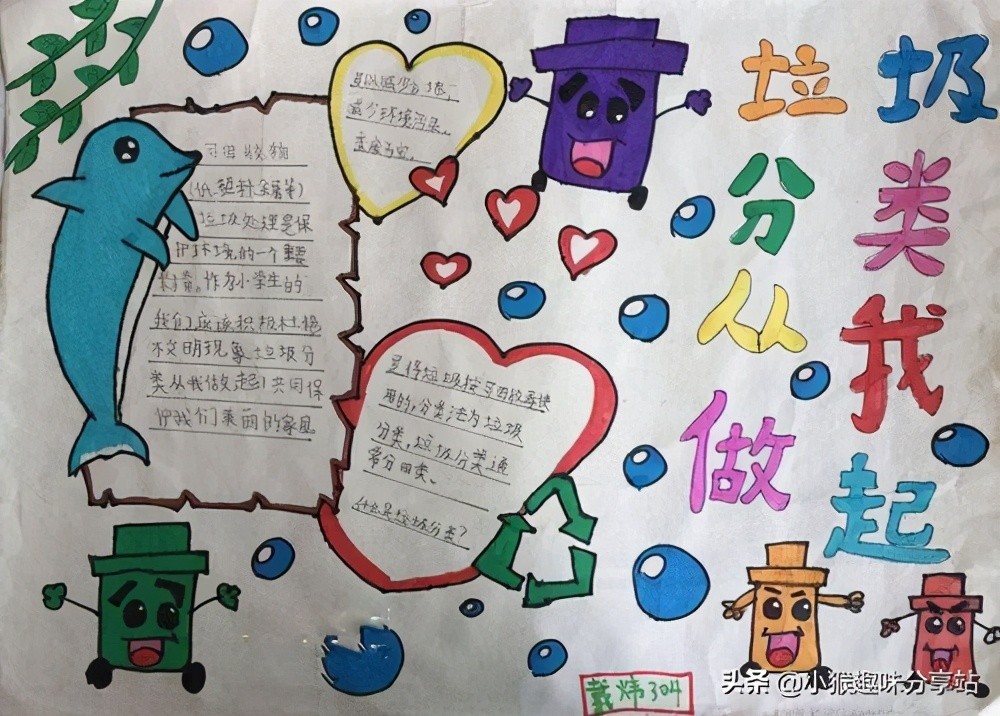 垃圾
分类
从我
做起
可回收物
垃圾处理是保
护环境的一个重要
作为小学生的
我们应该积极杜绝
校文明现象垃圾分
类从我做起!共同保
护我们美丽的家园
可以减少垃圾,
减少环境污染。
是将垃圾按可回收再使
用的,分类法为垃圾
分类,垃圾分类通
常分四类。
什么是垃圾分类?
戴炜304
头条 @小猴趣味分享站